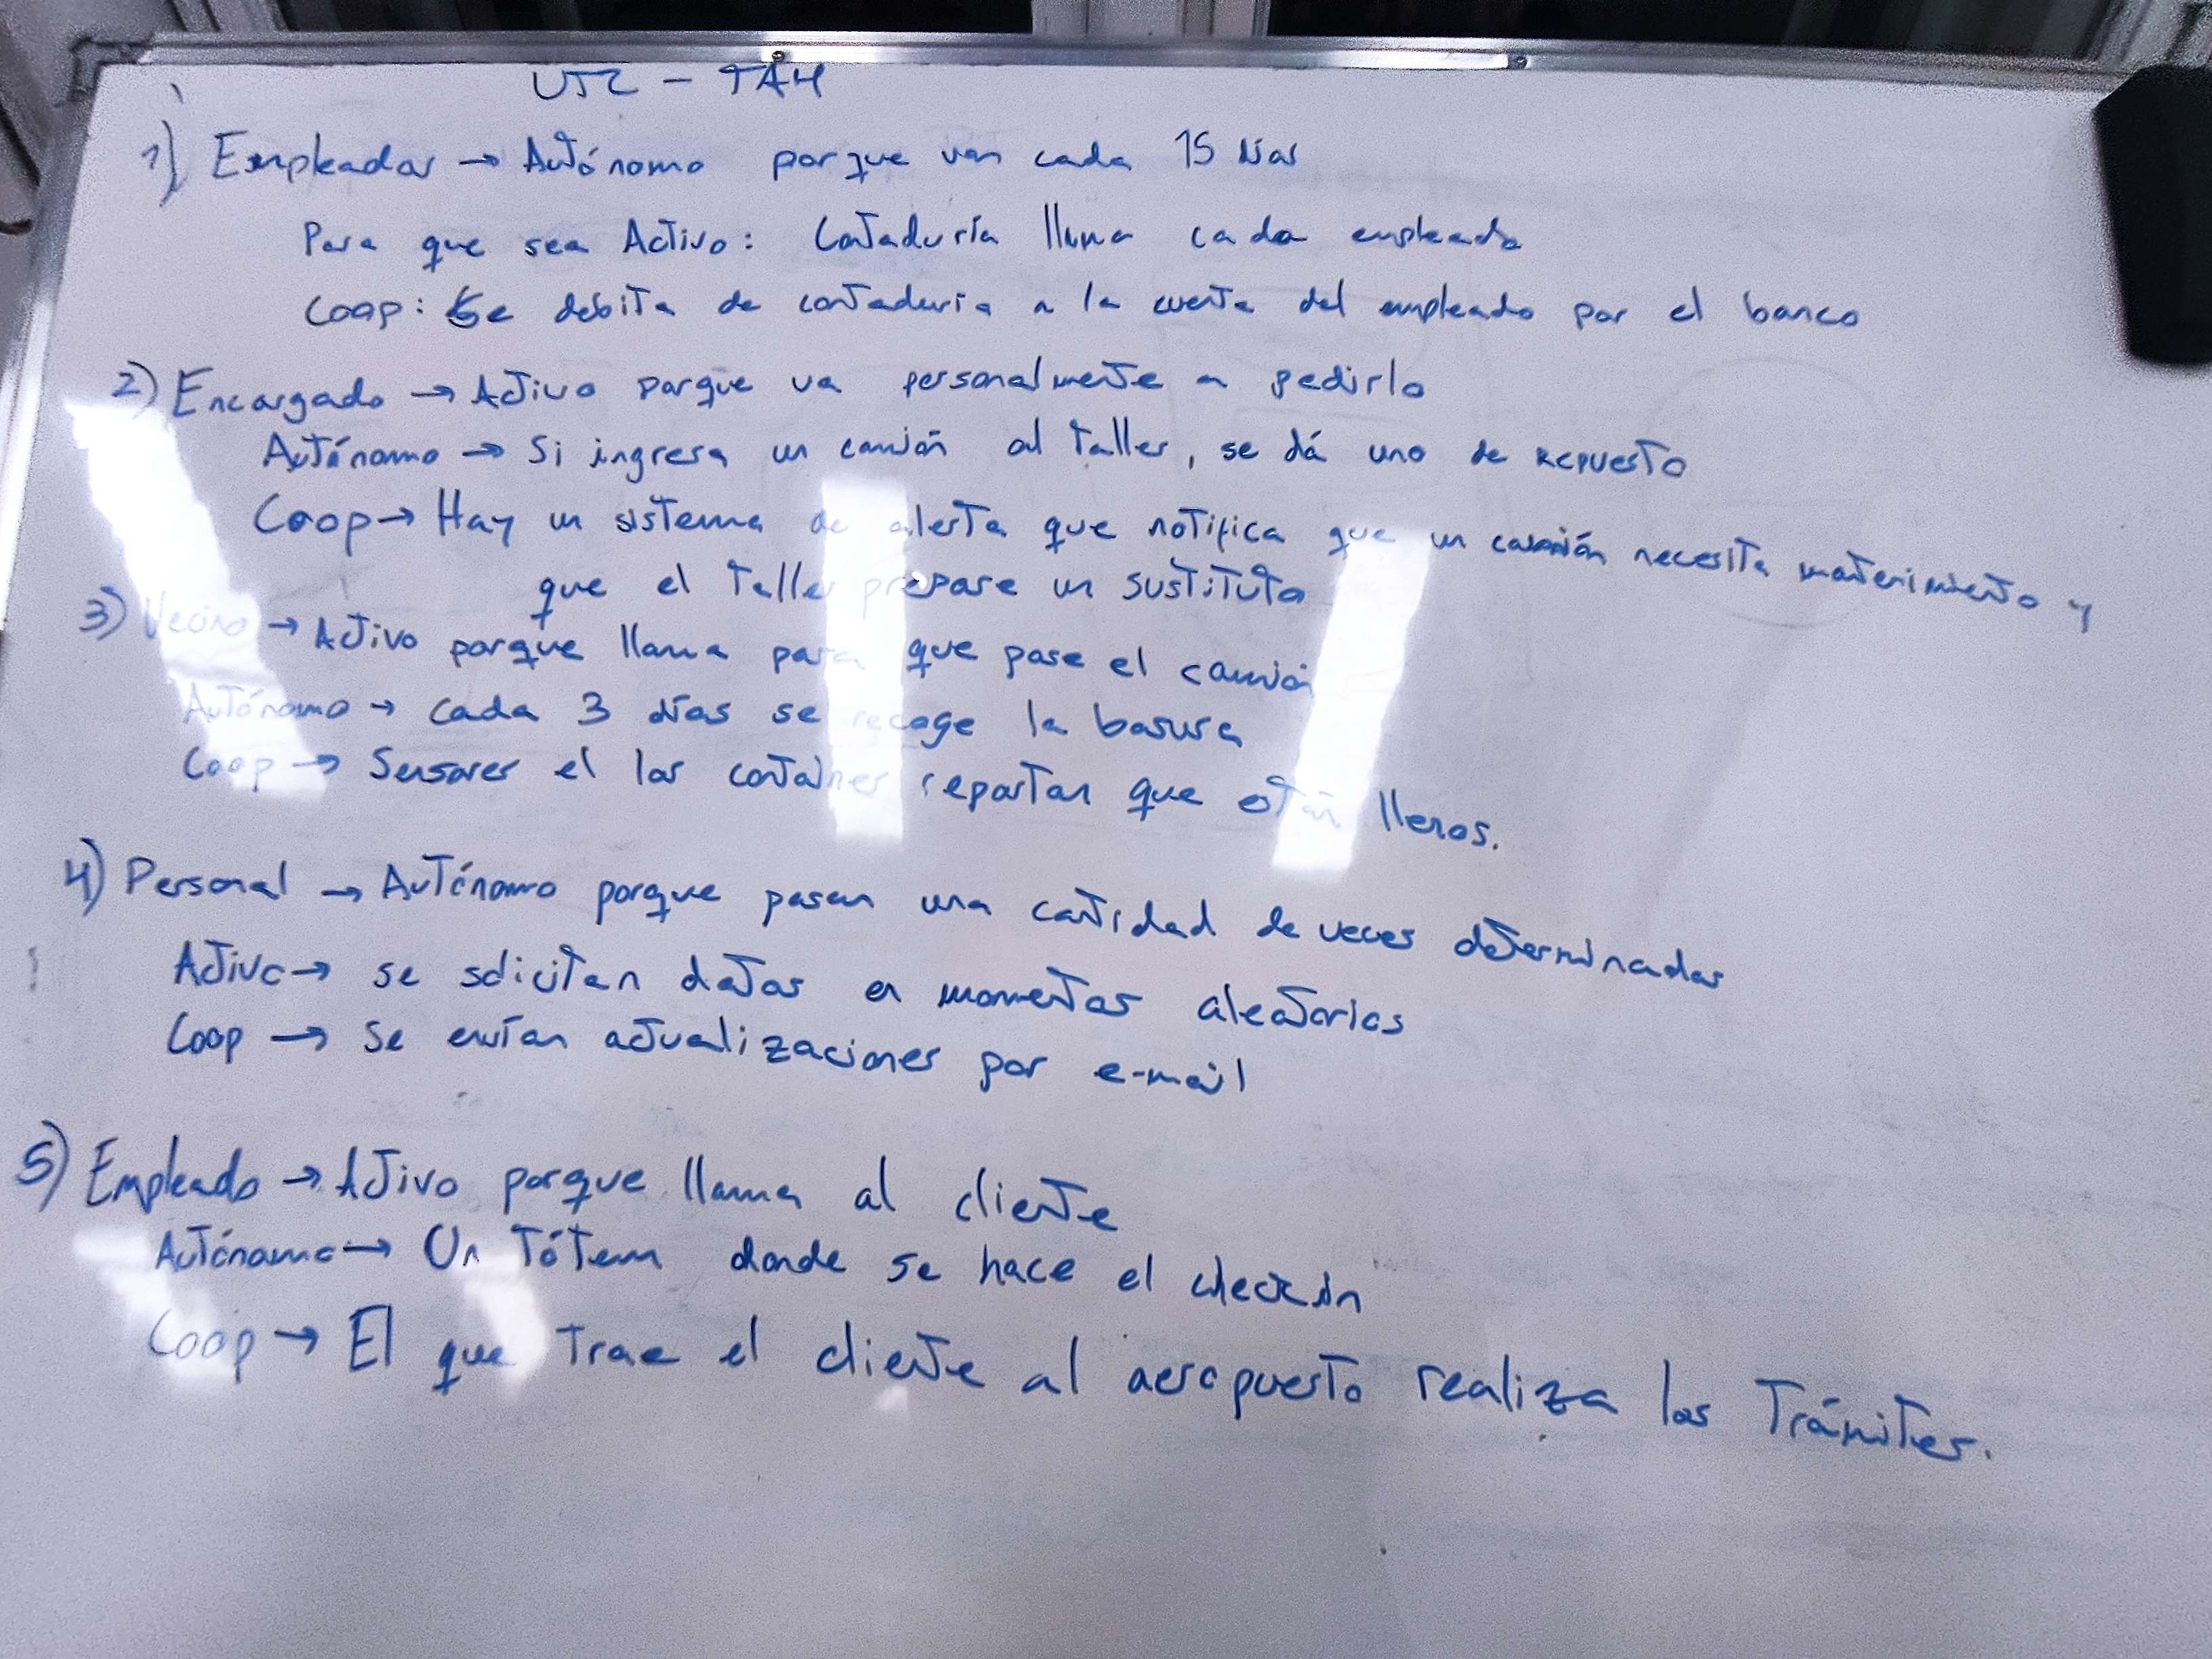 UT2 - TA4
1) Empleados → Autónomo porque van cada 15 días
Para que sea Activo: Contaduría llama cada empleado
Coop: Se debita de contaduría a la cuenta del empleado por el banco
2) Encargado → Activo porque va personalmente a pedirlo
Autónomo → Si ingresa un camión al taller, se dá uno de repuesto
Coop → Hay un sistema de alerta que notifica que un camión necesita mantenimiento y
que el taller prepare un sustituto
3) Vecino → Activo porque llama para que pase el camión
Autónomo → cada 3 días se recoge la basura
Coop → Sensores el los container reportan que están llenos.
4) Personal → Autónomo porque pasan una cantidad de veces determinadas
Activo → se solicitan datos en momentos aleatorios
Coop → Se envían actualizaciones por e-mail
5) Empleado → Activo porque llama al cliente
Autónomo → Un Tótem donde se hace el checkin
Coop → El que trae el cliente al aeropuerto realiza los Trámites.